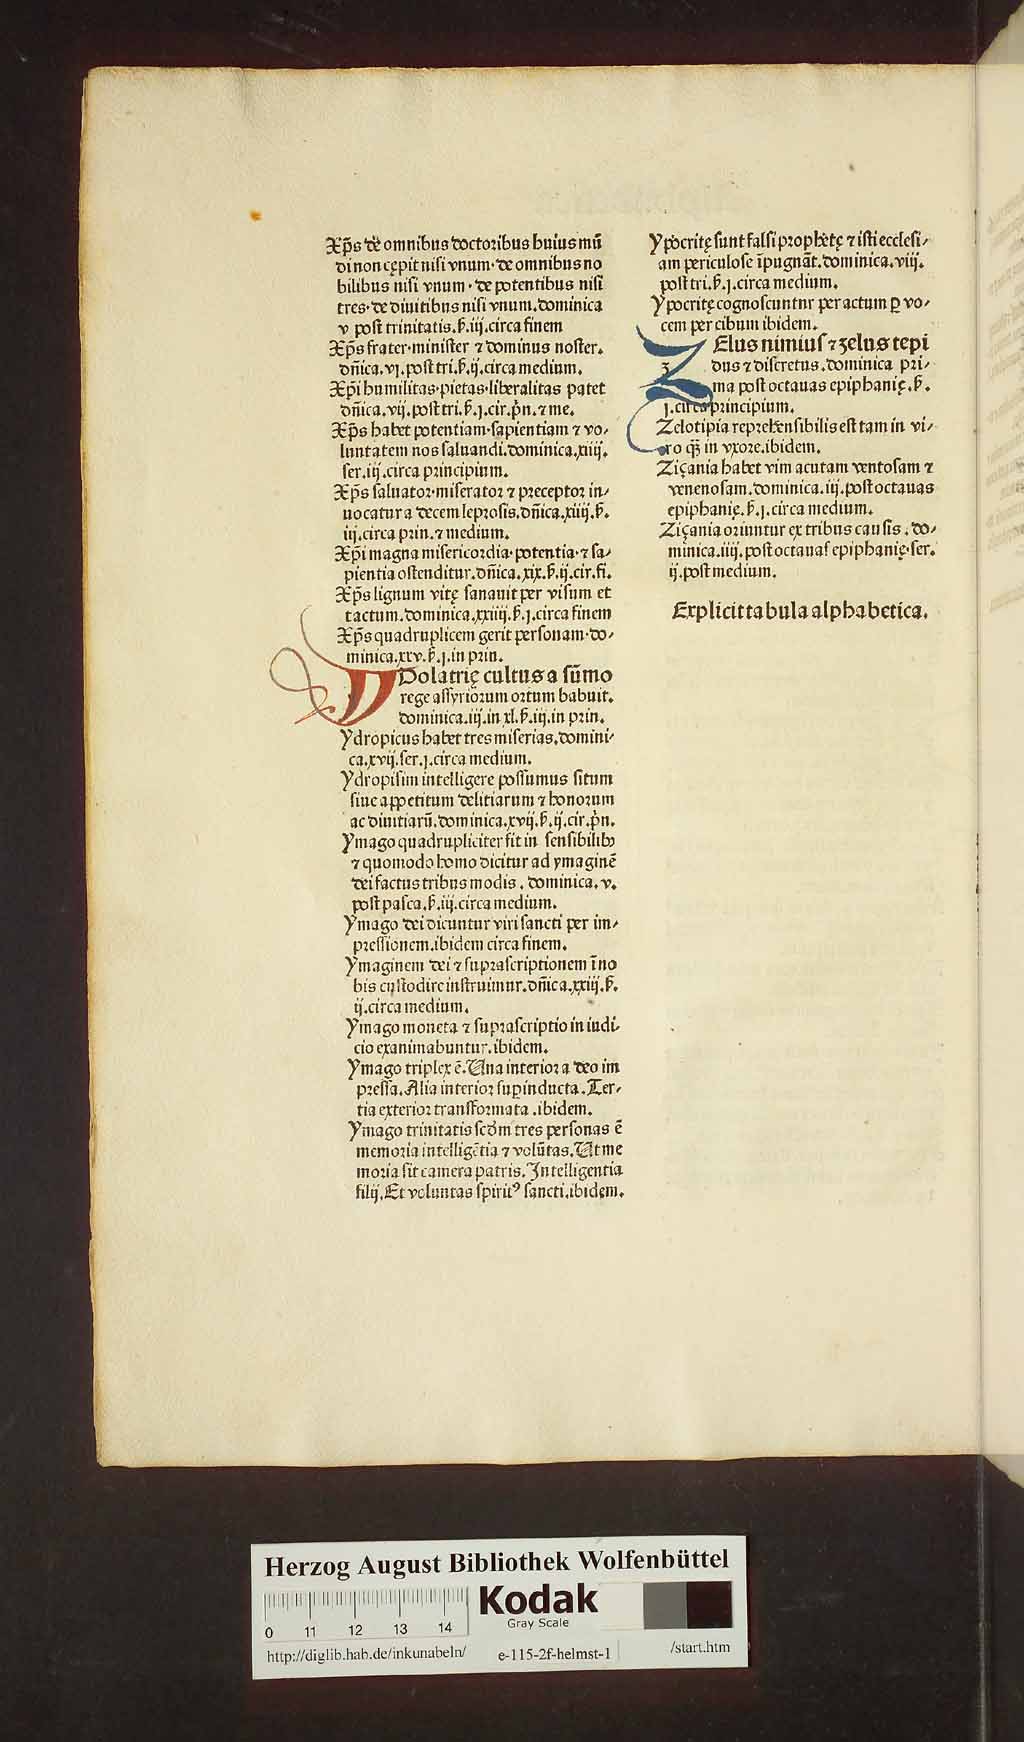 Xp̄s de omnibus doctoribus huius mū
di non cępit nisi vnum. de omnibus no
bilibus nisi vnum. de potentibus nisi
tres. de diuitibus nisi vnum. dominica
v post trinitatis. ẜ. iij. circa finem
Xp̄s frater. minister ⁊ dominus noster.
dn̄ica. vj. post tri. ẜ. ij. circa medium.
Xp̄i humilitas. pietas. liberalitas patet
dn̄ica. vij. post tri. ẜ. j. cir. p̄n. ⁊ me.
Xp̄s habet potentiam. sapientiam ⁊ vo⸗
luntatem nos saluandi. dominica. xiiij.
ser. iij. circa principium.
Xp̄s saluator. miserator ⁊ preceptor in⸗
uocatur a decem leprosis. dn̄ica. xiiij. ẜ.
iij. circa prin. ⁊ medium.
Xp̄i magna misericordia. potentia. ⁊ sa⸗
pientia ostenditur. dn̄ica. xix. ẜ. ij. cir. fi.
Xp̄s lignum vitę sanauit per visum et
tactum. dominica. xxiiij. ẜ. j. circa finem
Xp̄s quadruplicem gerit personam. do⸗
minica. xxv. ẜ. j. in prin.
YDolatrię cultus a sūmo
rege assyriorum ortum habuit.
dominica. iij. in xl. ẜ. iij. in prin.
Ydropicus habet tres miserias. domini⸗
ca. xvij. ser. j. circa medium.
Ydropisim intelligere possumus sitim
siue appetitum delitiarum ⁊ honorum
ac diuitiarū. dominica. xvij. ẜ. ij. cir. p̄n.
Ymago quadrupliciter fit in sensibilibꝫ
⁊ quomodo homo dicitur ad ymaginē
dei factus tribus modis. dominica. v.
post pasca. ẜ. iij. circa medium.
Ymago dei dicuntur viri sancti per im⸗
pressionem. ibidem circa finem.
Ymaginem dei ⁊ suprascriptionem ī no
bis custodire instruimur. dn̄ica. xxiij. ẜ.
ij. circa medium.
Ymago moneta ⁊ suprascriptio in iudi⸗
cio examinabuntur. ibidem.
Ymago triplex ē. Una interior a deo im
pressa. Alia interior suꝑinducta. Ter⸗
tia exterior transformata. ibidem.
Ymago trinitatis scd̄m tres personas ē
memoria intelligētia ⁊ volūtas. Ut me
moria sit camera patris. Intelligentia
filij. Et voluntas spiritꝰ sancti. ibidem.
Ypocritę sunt falsi prophetę ⁊ isti ecclesi⸗
am periculose īpugnāt. dominica. viij.
post tri. ẜ. j. circa medium.
Ypocritę cognoscuntur per actum ꝑ vo⸗
cem per cibum ibidem.
ZElus nimius ⁊ zelus tepi
dus ⁊ discretus. dominica pri⸗
ma post octauas epiphanię. ẜ.
j. circa principium.
Zelotipia reprehensibilis est tam in vi⸗
ro qꝫ in vxore. ibidem.
Ziçania habet vim acutam ventosam ⁊
venenosam. dominica. iij. post octauas
epiphanię. ẜ. j. circa medium.
Ziçania oriuntur ex tribus causis. do⸗
minica. iiij. post octauas epiphanię. ser.
ij. post medium.
Explicit tabula alphabetica.
Herzog August Bibliothek Wolfenbüttel
Kodak
Gray Scale
0 11 12 13 14
http://diglib.hab.de/inkunabeln/ e-115-2f-helmst-1 /start.htm